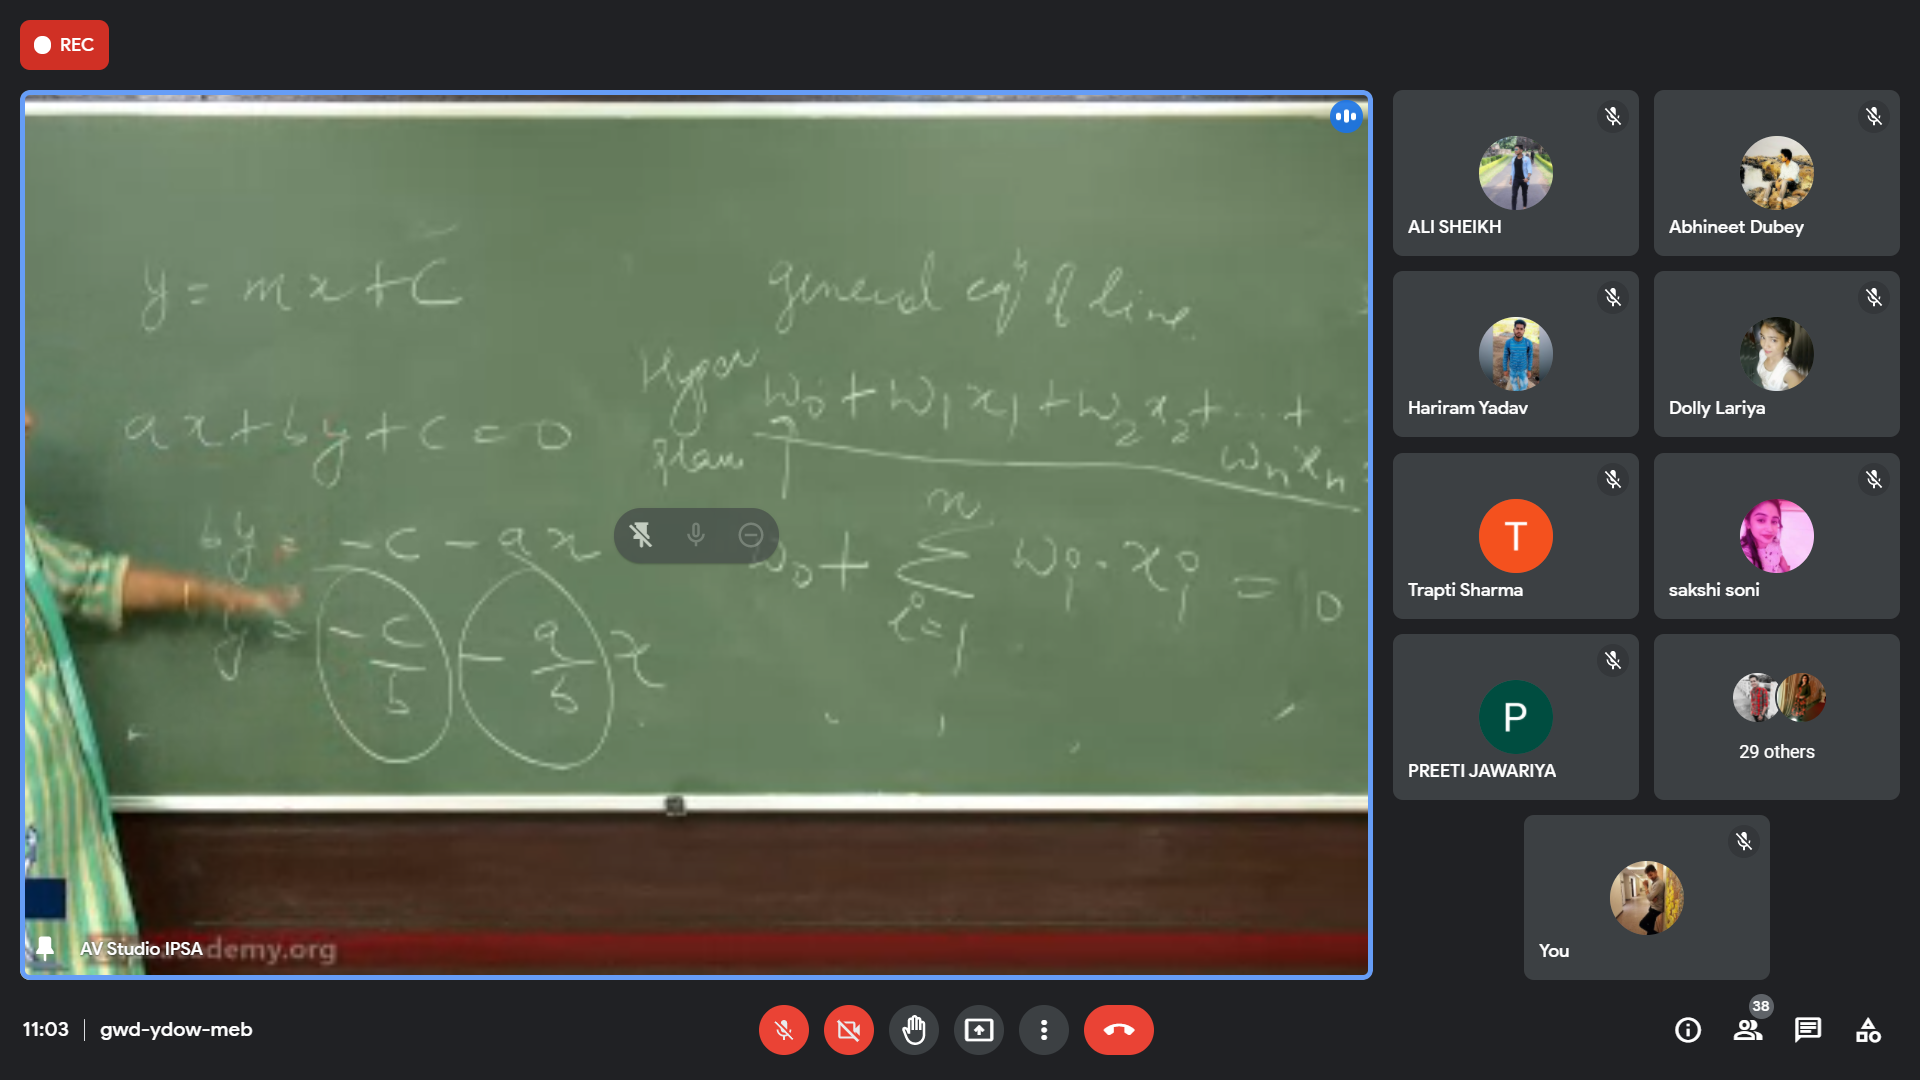 REC
y = mx + C
general eqⁿ of line
Hyper
plane
w₀ + w₁x₁ + w₂x₂ + ... +
wₙxₙ
ax + by + c = 0
by = -c - ax
y = -c/b - a/b x
w₀ + n Σ i=1 wᵢ . xᵢ = 0
AV Studio IPSA
demy.org
ALI SHEIKH
Abhineet Dubey
Hariram Yadav
Dolly Lariya
T
Trapti Sharma
sakshi soni
P
PREETI JAWARIYA
29 others
You
11:03 | gwd-ydow-meb
38